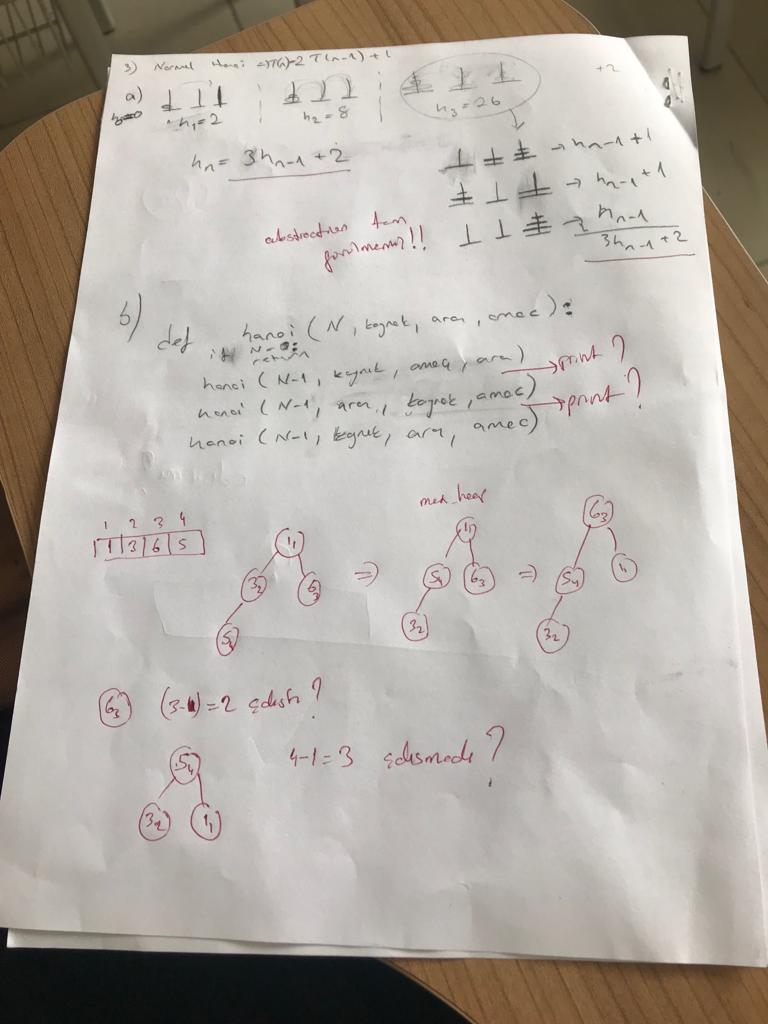 3) Normal Hanoi => T(n)=2 T(n-1) + 1
+2
a)
h₁=2 h₂=8 h₃=26
hₙ = 3hₙ₋₁ + 2
→ hₙ₋₁ + 1
→ hₙ₋₁ + 1
→ hₙ₋₁
3hₙ₋₁ + 2
abstraction tam
görülmemiş!!
b)
def hanoi (N, kaynak, ara, amac):
if N=0:
return
hanoi (N-1, kaynak, amaç, ara) → print ?
hanoi (N-1, ara, kaynak, amac) → print ?
hanoi (N-1, kaynak, ara, amac)
max_heap
1 2 3 4
1 3 6 5
1₁ => 1₁ => 6₃
3₂ 6₃ 5₄ 6₃ 5₄ 1₁
5₄ 3₂ 3₂
6₃ (3-1)=2 çalıştı?
5₄ 4-1=3 çalışmadı?
3₂ 1₁